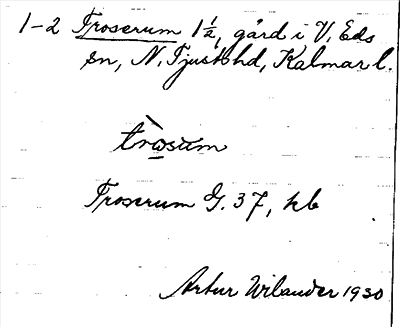 1-2 Troserum 1 1/2, gård i V. Eds
sn, N. Tjusts hd, Kalmar l.
tròsum
Troserum G. 37, kb
Artur Wilander 1930